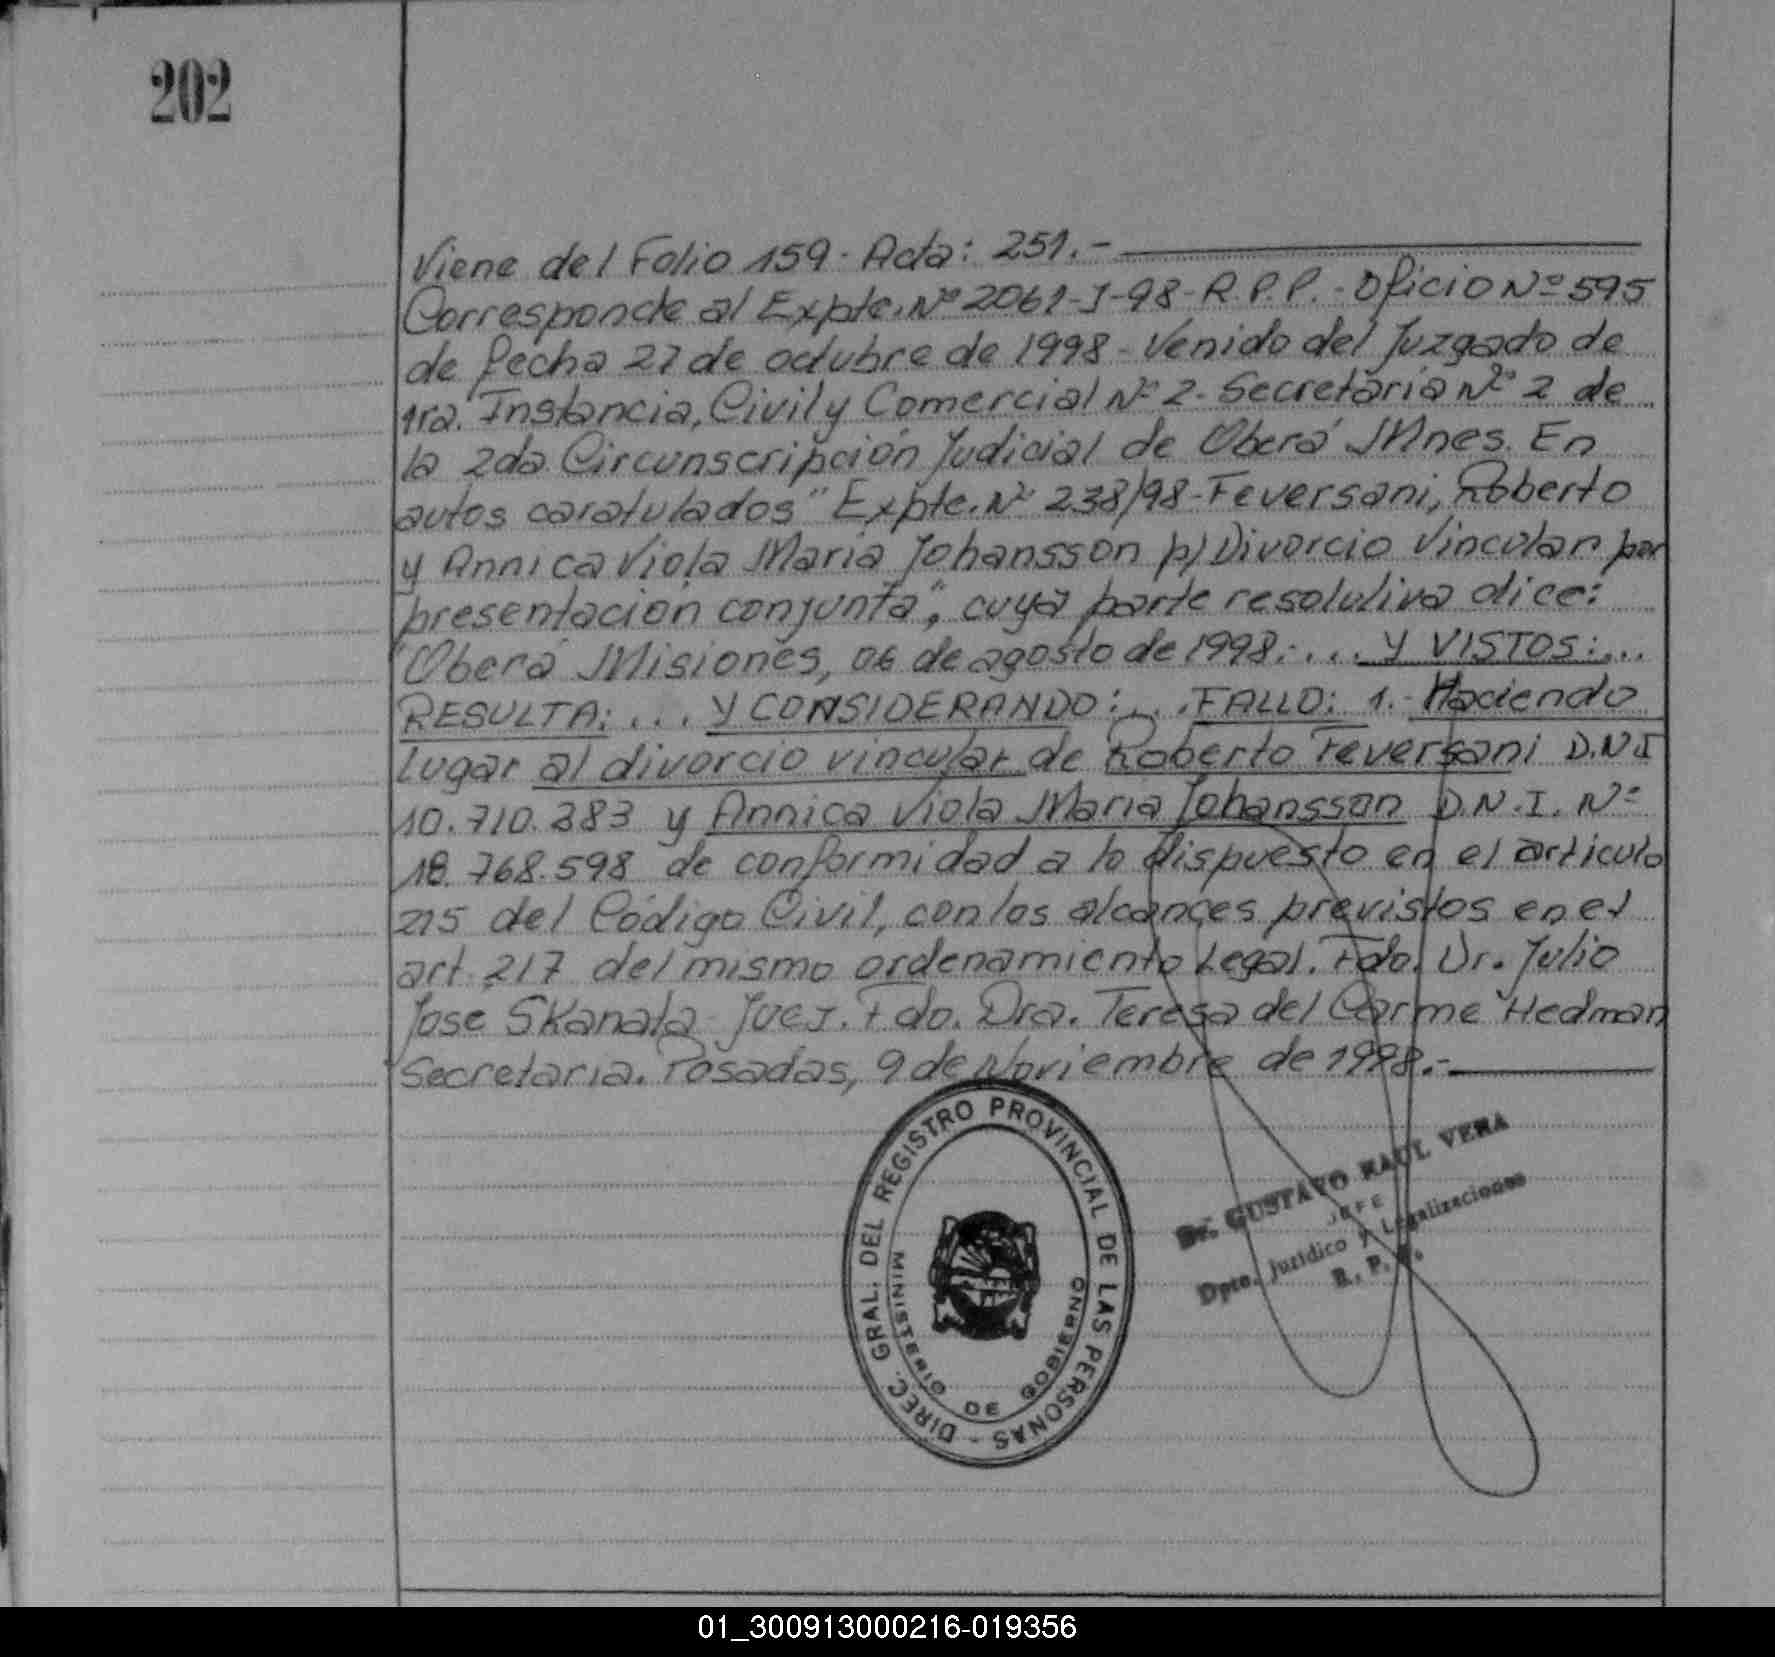 202
Viene del Folio 159 - Acta: 251.-
Corresponde al Expte. Nº 2061-J-98-R.P.P.- Oficio Nº 595
de fecha 27 de octubre de 1998 - Venido del Juzgado de
1ra. Instancia, Civil y Comercial Nº 2 - Secretaría Nº 2 de
la 2da. Circunscripción Judicial de Oberá Mnes. En
autos caratulados "Expte. Nº 238/98-Feversani, Roberto
y Annica Viola Maria Johansson p/ Divorcio Vincular por
presentación conjunta", cuya parte resolutiva dice:
"Oberá Misiones, 06 de agosto de 1998:.... Y VISTOS:...
RESULTA:.... Y CONSIDERANDO:... FALLO: 1.- Haciendo
Lugar al divorcio vincular de Roberto Feversani D.N.I
10.710.383 y Annica Viola Maria Johansson D.N.I. Nº
18.768.598 de conformidad a lo dispuesto en el articulo
215 del Código Civil, con los alcances previstos en el
art. 217 del mismo ordenamiento Legal. Fdo. Dr. Julio
Jose Skanata - Juez. Fdo. Dra. Teresa del Carme Hedman
Secretaria. Posadas, 9 de Noviembre de 1998.-
DIREC. GRAL. DEL REGISTRO PROVINCIAL DE LAS PERSONAS -
MINISTERIO DE GOBIERNO
Dr. GUSTAVO RAUL VERA
JEFE
Dpto. Juridico y Legalizaciones
R. P. P.
01_300913000216-019356